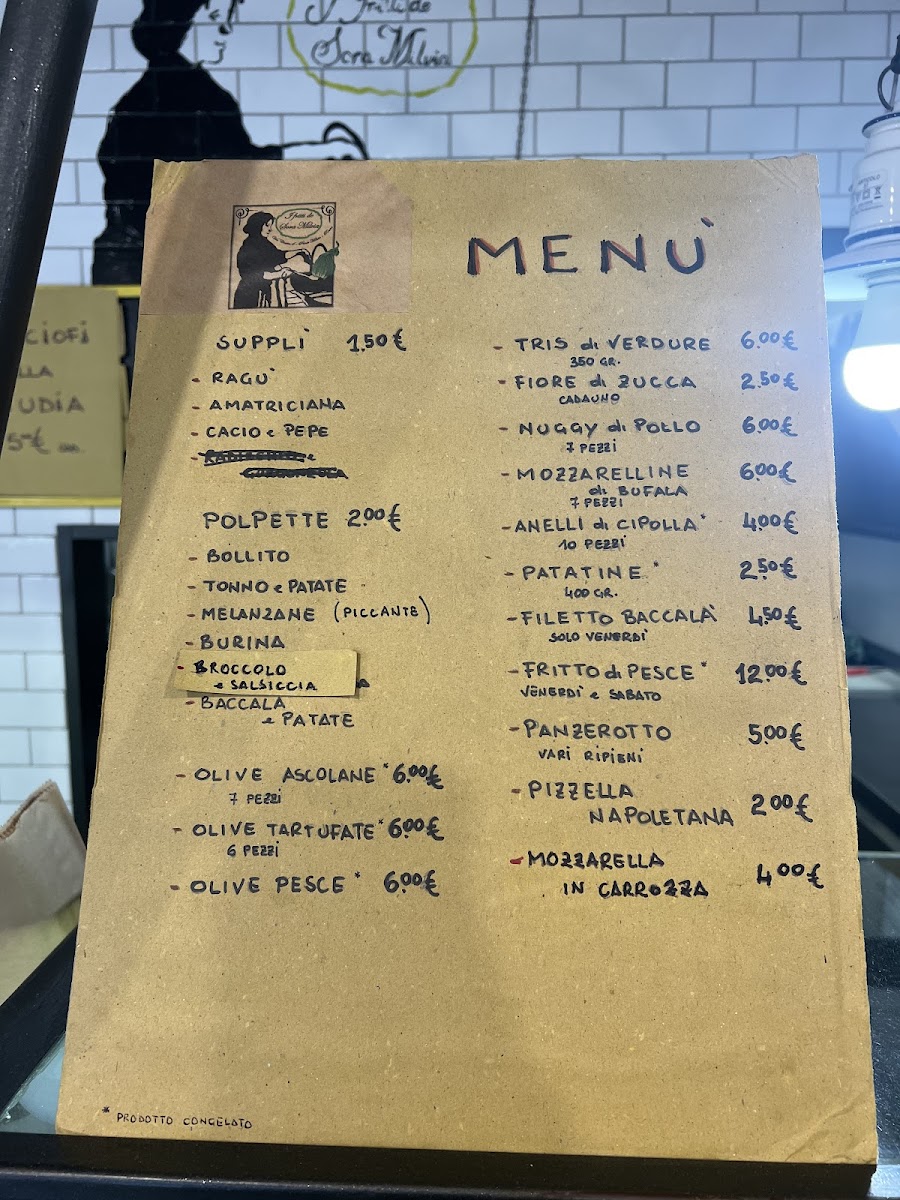 Sora Milvia
CIOFI
LLA
UDIA
5€
I fritti de
Sora Milvia
MENÙ
SUPPLÌ 1,50€
- RAGU'
- AMATRICIANA
- CACIO e PEPE
POLPETTE 2.00€
- BOLLITO
- TONNO e PATATE
- MELANZANE (PICCANTE)
- BURINA
- BROCCOLO
e SALSICCIA
- BACCALA
e PATATE
- OLIVE ASCOLANE* 6.00€
7 PEZZI
- OLIVE TARTUFATE* 6.00€
6 PEZZI
- OLIVE PESCE* 6.00€
- TRIS di VERDURE 6.00€
350 GR.
- FIORE di ZUCCA 2.50€
CADAUNO
- NUGGY di POLLO 6.00€
7 PEZZI
- MOZZARELLINE 6.00€
di BUFALA
7 PEZZI
- ANELLI di CIPOLLA* 4.00€
10 PEZZI
- PATATINE* 2.50€
400 GR.
- FILETTO BACCALÀ 4.50€
SOLO VENERDÌ
- FRITTO di PESCE* 12.00€
VENERDÌ e SABATO
- PANZEROTTO 5.00€
VARI RIPIENI
- PIZZELLA
NAPOLETANA 2.00€
- MOZZARELLA
IN CARROZZA 4.00€
* PRODOTTO CONGELATO